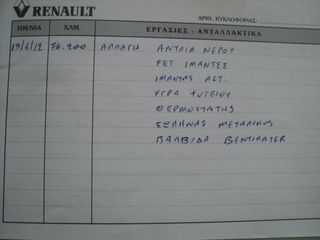 RENAULT
ΑΡΙΘ. ΚΥΚΛΟΦΟΡΙΑΣ:
ΗΜ/ΝΙΑ ΧΛΜ. ΕΡΓΑΣΙΕΣ - ΑΝΤΑΛΛΑΚΤΙΚΑ
13/6/12 74.200 ΑΛΛΑΓΗ ΑΝΤΛΙΑ ΝΕΡΟΥ
ΣΕΤ ΙΜΑΝΤΕΣ
ΙΜΑΝΤΑΣ ALT.
ΥΓΡΑ ΨΥΓΕΙΟΥ
ΘΕΡΜΟΣΤΑΤΗΣ
ΣΩΛΗΝΑΣ ΜΕΤΑΛΙΚΟΣ
ΒΑΛΒΙΔΑ ΒΕΝΤΙΛΑΤΕΡ